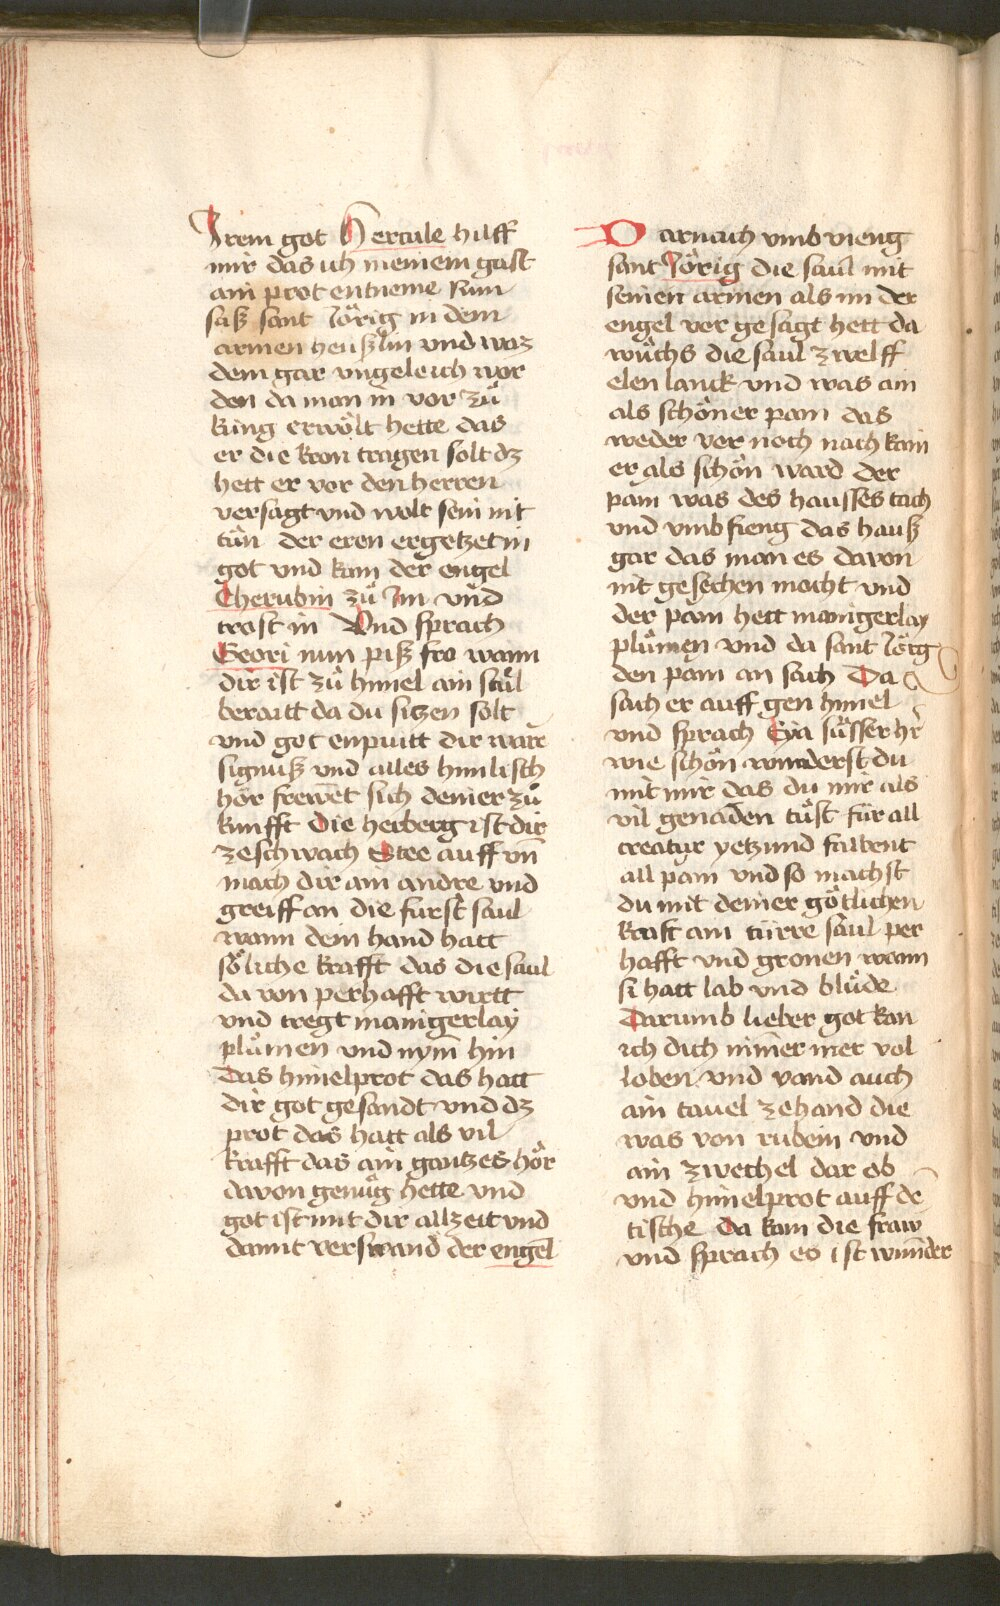 Irem got Hercule hilff
mir das ich meinem gast
ain prot entneme Nun
saß sant Jörig in dem
armen heüßlin vnd waz
dem gar vngeleich wor
den da man in vor zů
küng erwölt hette das
er die kron tragen solt dz
hett er vor den herren
versagt vnd wolt sein nit
tůn der eren ergetzet in
got vnd kam der engel
Cherubin zů Im vnd
trost in Vnd sprach
Geori nun piß fro wann
dir ist zů himel ain stůl
beraitt da du sitzen solt
vnd got enpuitt dir ware
signuß vnd alles himlisch
hör frewet sich deiner zů
kunfft Die herberg ist dir
ze schwach Stee auff vn̄
mach dir ain andre vnd
greiff an die fürst saul
wann dein hand hatt
söliche krafft das die saul
da von perhafft wirtt
vnd tregt manigerlay
plůmen vnd nym̄ hin
Das himelprot das hatt
dir got gesandt vnd dz
prot das hatt als vil
krafft das ain gantzes hör
davon genůg hette vnd
got ist mit dir allzeit vnd
damit verswand der engel
Darnach vmb vieng
sant Jörig die saul mit
seinen armen als im der
engel vor gesagt hett da
wůchs die saul zwelff
elen lanck vnd was ain
als schöner pam das
weder vor noch nach kain
er als schön ward der
pam was des hausses tach
vnd vmb fieng das hauß
gar das man es davon
nit gesechen mocht vnd
der pam hett manigerlay
plůmen vnd da sant Jörg
den pam an sach Da
sach er auff gen himel
vnd sprach Eya sůsser hr̄
wie schön wunderst du
mit mir das du mir als
vil genaden tůst für all
creatur yetzund falbent
all pam vnd so machst
du mit deiner götlichen
kraft ain türre saul per
hafft vnd gronen wann
si hatt lab vnd blůde
Darumb lieber got kan
ich dich nimer mer vol
loben vnd vand auch
ain tauel zehand die
was von rubein vnd
ain zwechel dar ob
vnd himelprot auff de̅
tische Da kam die fraw
vnd sprach es ist wunder